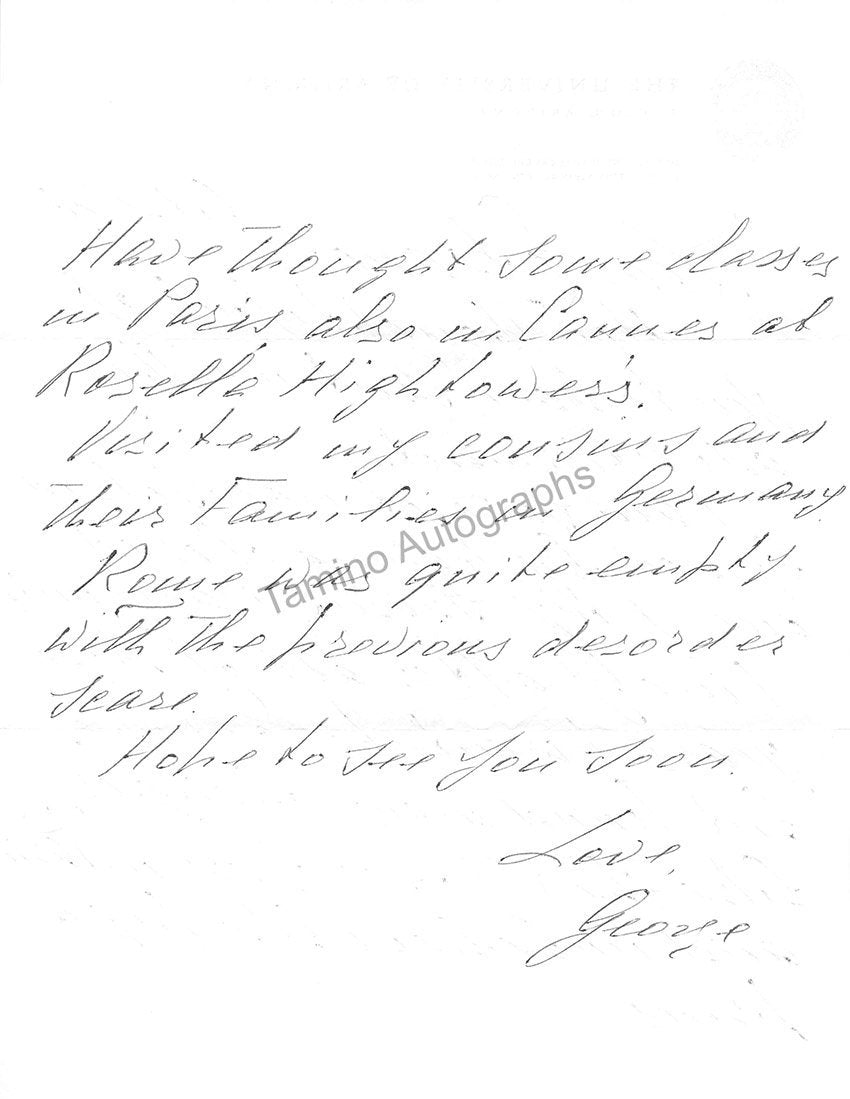 Have thought some classes
in Paris, also in Cannes at
Rosella Hightower's.
Visited my cousins and
their Families in Germany
Rome was quite empty.
with the previous desorder
scare.
Hope to see you soon.
Love,
George
Tamino Autographs